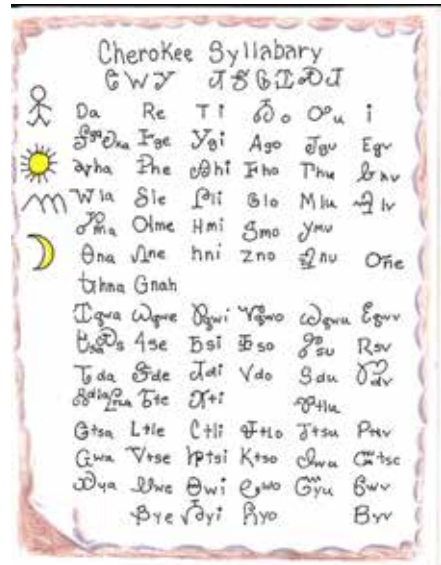 Cherokee Syllabary
ᏣᎳᎩ
Ꭰa Ꭱe Ꭲi Ꭳo Ꭴu i
Ꭶga Ꭷka Ꭸge Ꭹgi Ꭺgo Ꭻgu Ꭼgv
Ꭽha Ꭾhe Ꭿhi Ꮀho Ꮁhu Ꮂhv
Ꮃla Ꮄle Ꮅli Ꮆlo Ꮇlu Ꮈlv
Ꮉma Ꮊme Ꮋmi Ꮌmo Ꮍmu
Ꮎna Ꮑne Ꮒni Ꮓno Ꮕnu
Ꮏhna Ꮐnah
Ꮖqwa Ꮗqwe Ꮘqwi Ꮙqwo Ꮚqwu Ꮛqvv
Ꮜsa Ꮝs Ꮞse Ꮟsi Ꮠso Ꮡsu Ꮢsv
Ꮣda Ꮥde Ꮧdi Ꮩdo Ꮪdu Ꮫdv
Ꮬdla Ꮦte Ꮨti
Ꮳtsa Ꮮtle Ꮯtli Ꮰtlo Ꮷtsu
Ꮹwa Ꮴtse Ꮵtsi Ꮶtso Ꮽwu
Ꮿya Ꮺwe Ꮻwi Ꮼwo Ᏻyu Ꮾwv
Ᏸye Ᏹyi Ᏺyo Ᏼyv